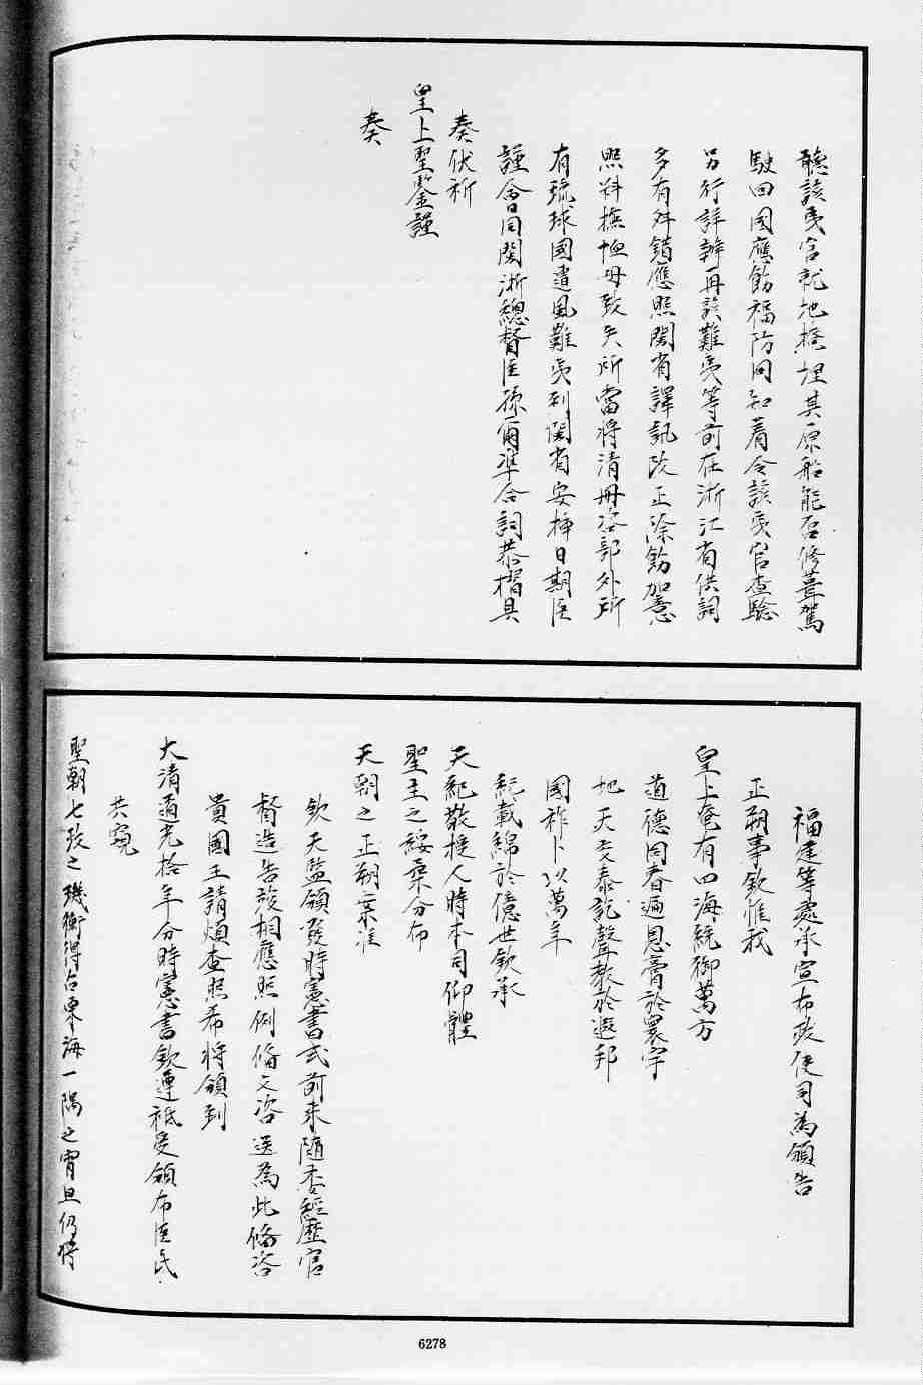 聽該夷官就地掩埋其原船能否修葺駕
駛回國應飭福防同知着令該夷官查驗
另行詳辦再該難夷等前在浙江省供詞
多有舛錯應照閩省譯訊改正除飭加意
照料撫恤毋致失所當將清冊咨部外所
有琉球國遭風難夷到閩省安插日期臣
謹會同閩浙總督臣孫爾準合詞恭摺具
奏伏祈
皇上聖鑒謹
奏
福建等處承宣布政使司為頒告
正朔事欽惟我
皇上奄有四海統御萬方
道德同春遍恩膏於寰宇
地天交泰訖聲教於遐邦
國祚卜以萬年
紀載綿於億世欽承
天紀敬授人時本司仰體
聖主之綏柔分布
天朝之正朔案准
欽天監頒發時憲書式前來隨委經歷官
督造告竣相應照例備文咨送為此備咨
貴國王請煩查照希將頒到
大清道光拾年分時憲書欽遵祗受頒布臣民
共窺
聖朝七政之璣衡得占東海一隅之宵旦仍將
6278